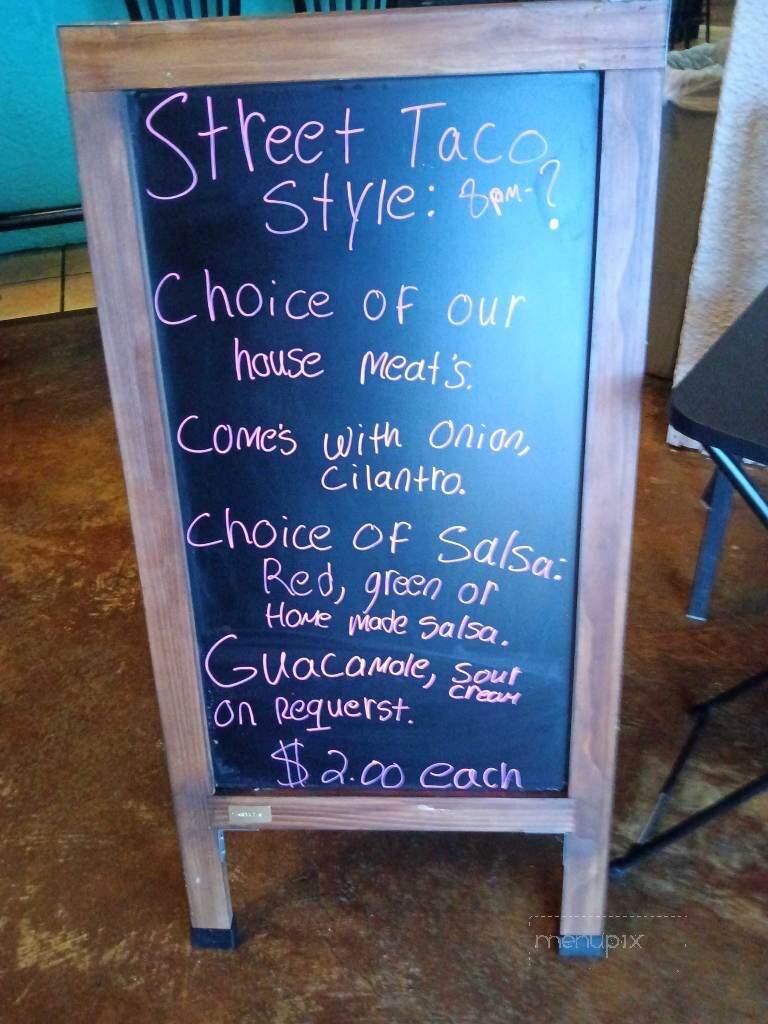 Street Taco
Style: 8pm-?
Choice of our
house meat's.
Come's with onion,
cilantro.
Choice of Salsa:
Red, green or
Home made salsa.
Guacamole, sour
cream
on Requerst.
$2.00 each
menupix